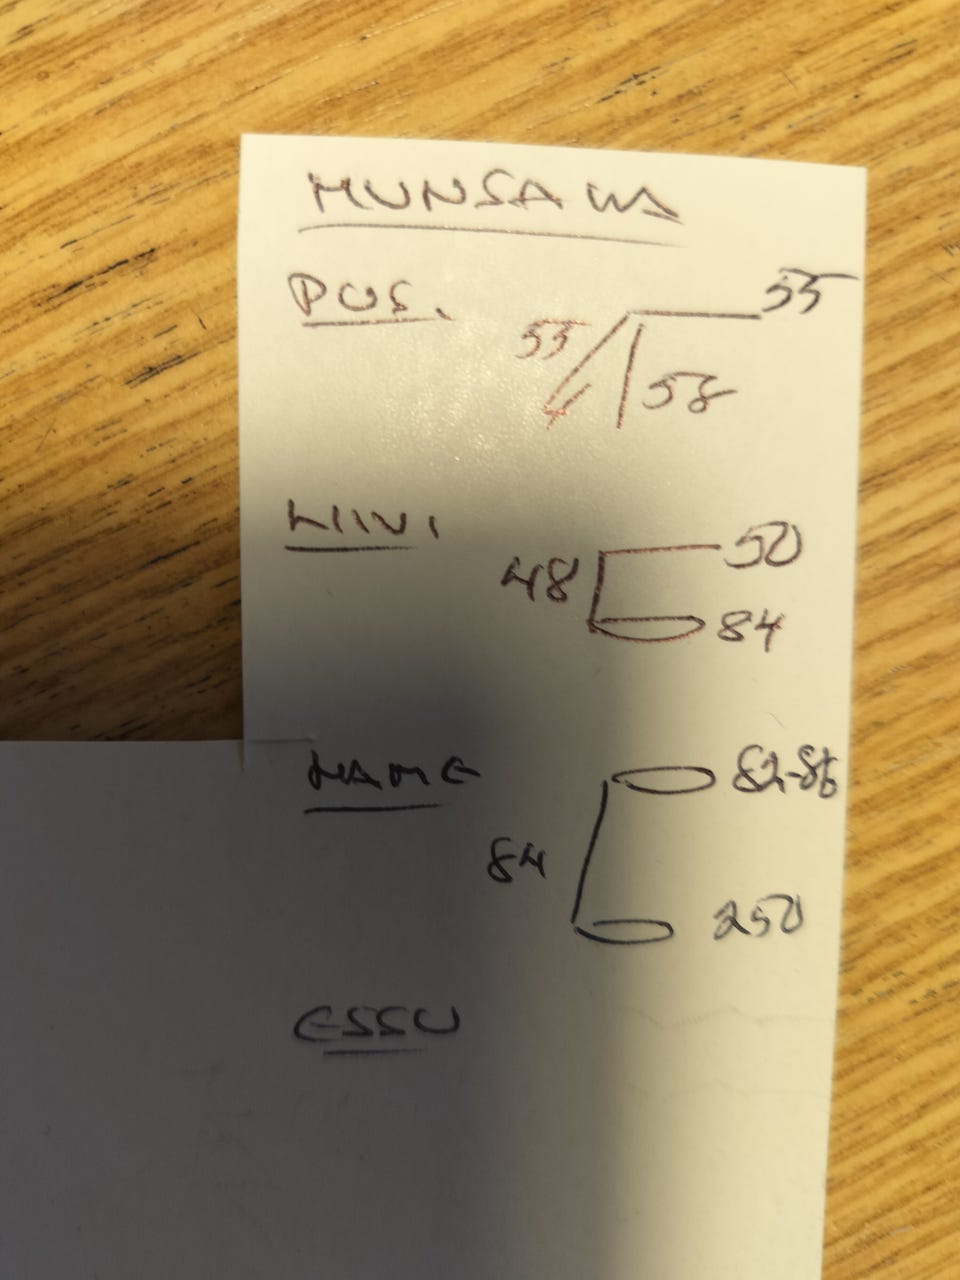 MUNSALA
PUS.
55
55
58
LIIVI
50
48
84
HAME
82-86
84
250
ESSU